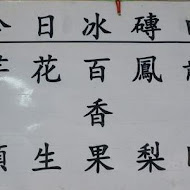 今日冰磚
芋頭
花生
百香果
鳳梨